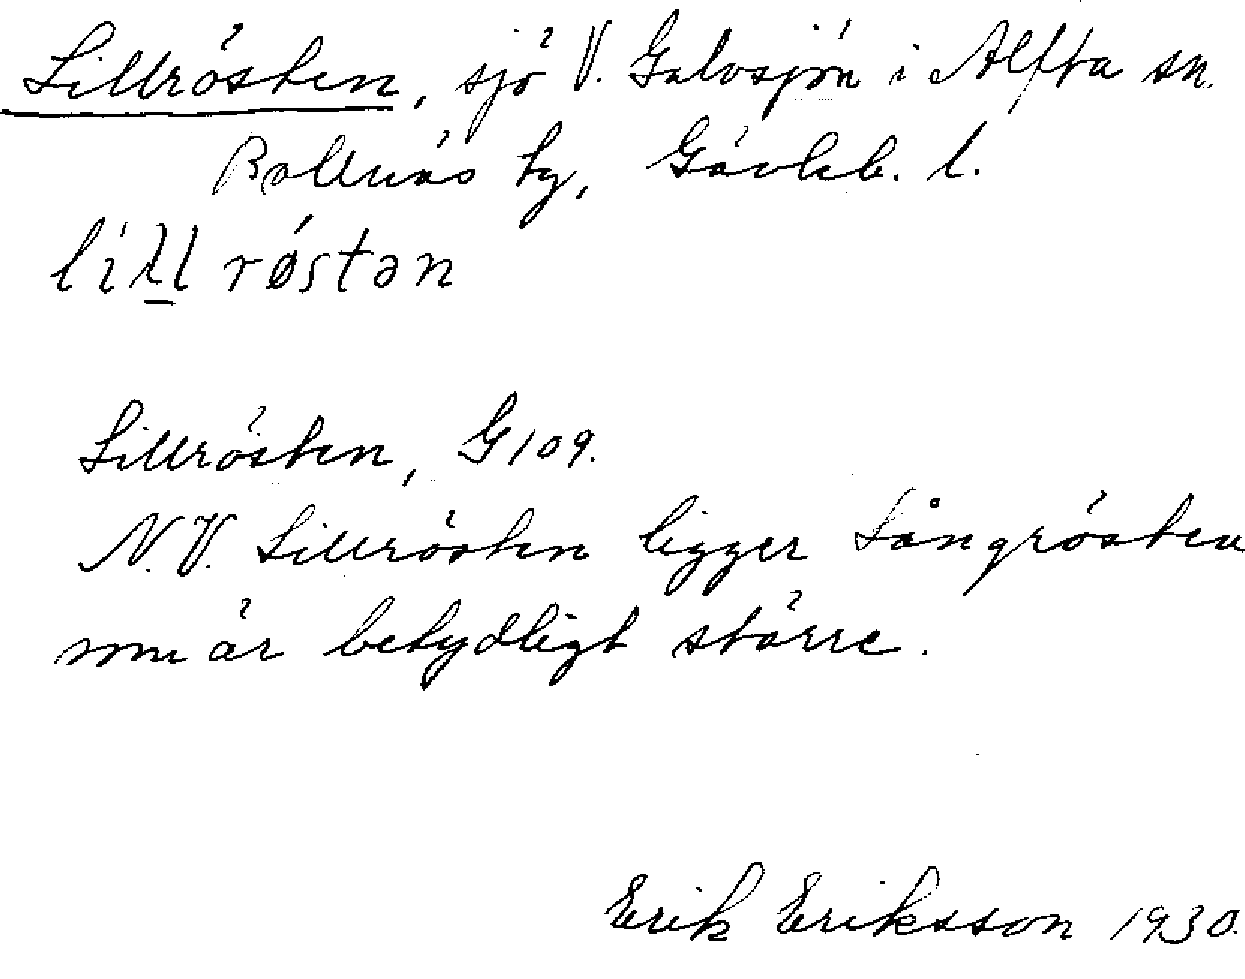 Lillrösten, sjö V. Galvsjön i Alfta sn.
Bollnäs tg, Gävleb. l.
lill røstən
Lillrösten, G109.
N.V. Lillrösten ligger Långrösten
som är betydligt större.
Erik Eriksson 1930.